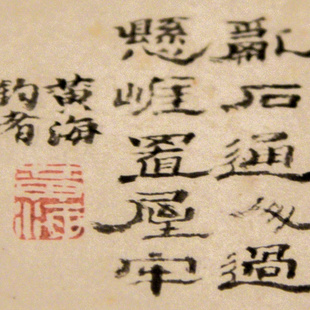 亂石通人過
懸崖置屋牢
黃海
釣者